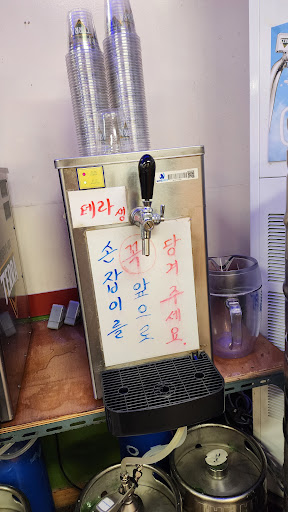 테라 생
손잡이를
꼭 앞으로
당겨 주세요.